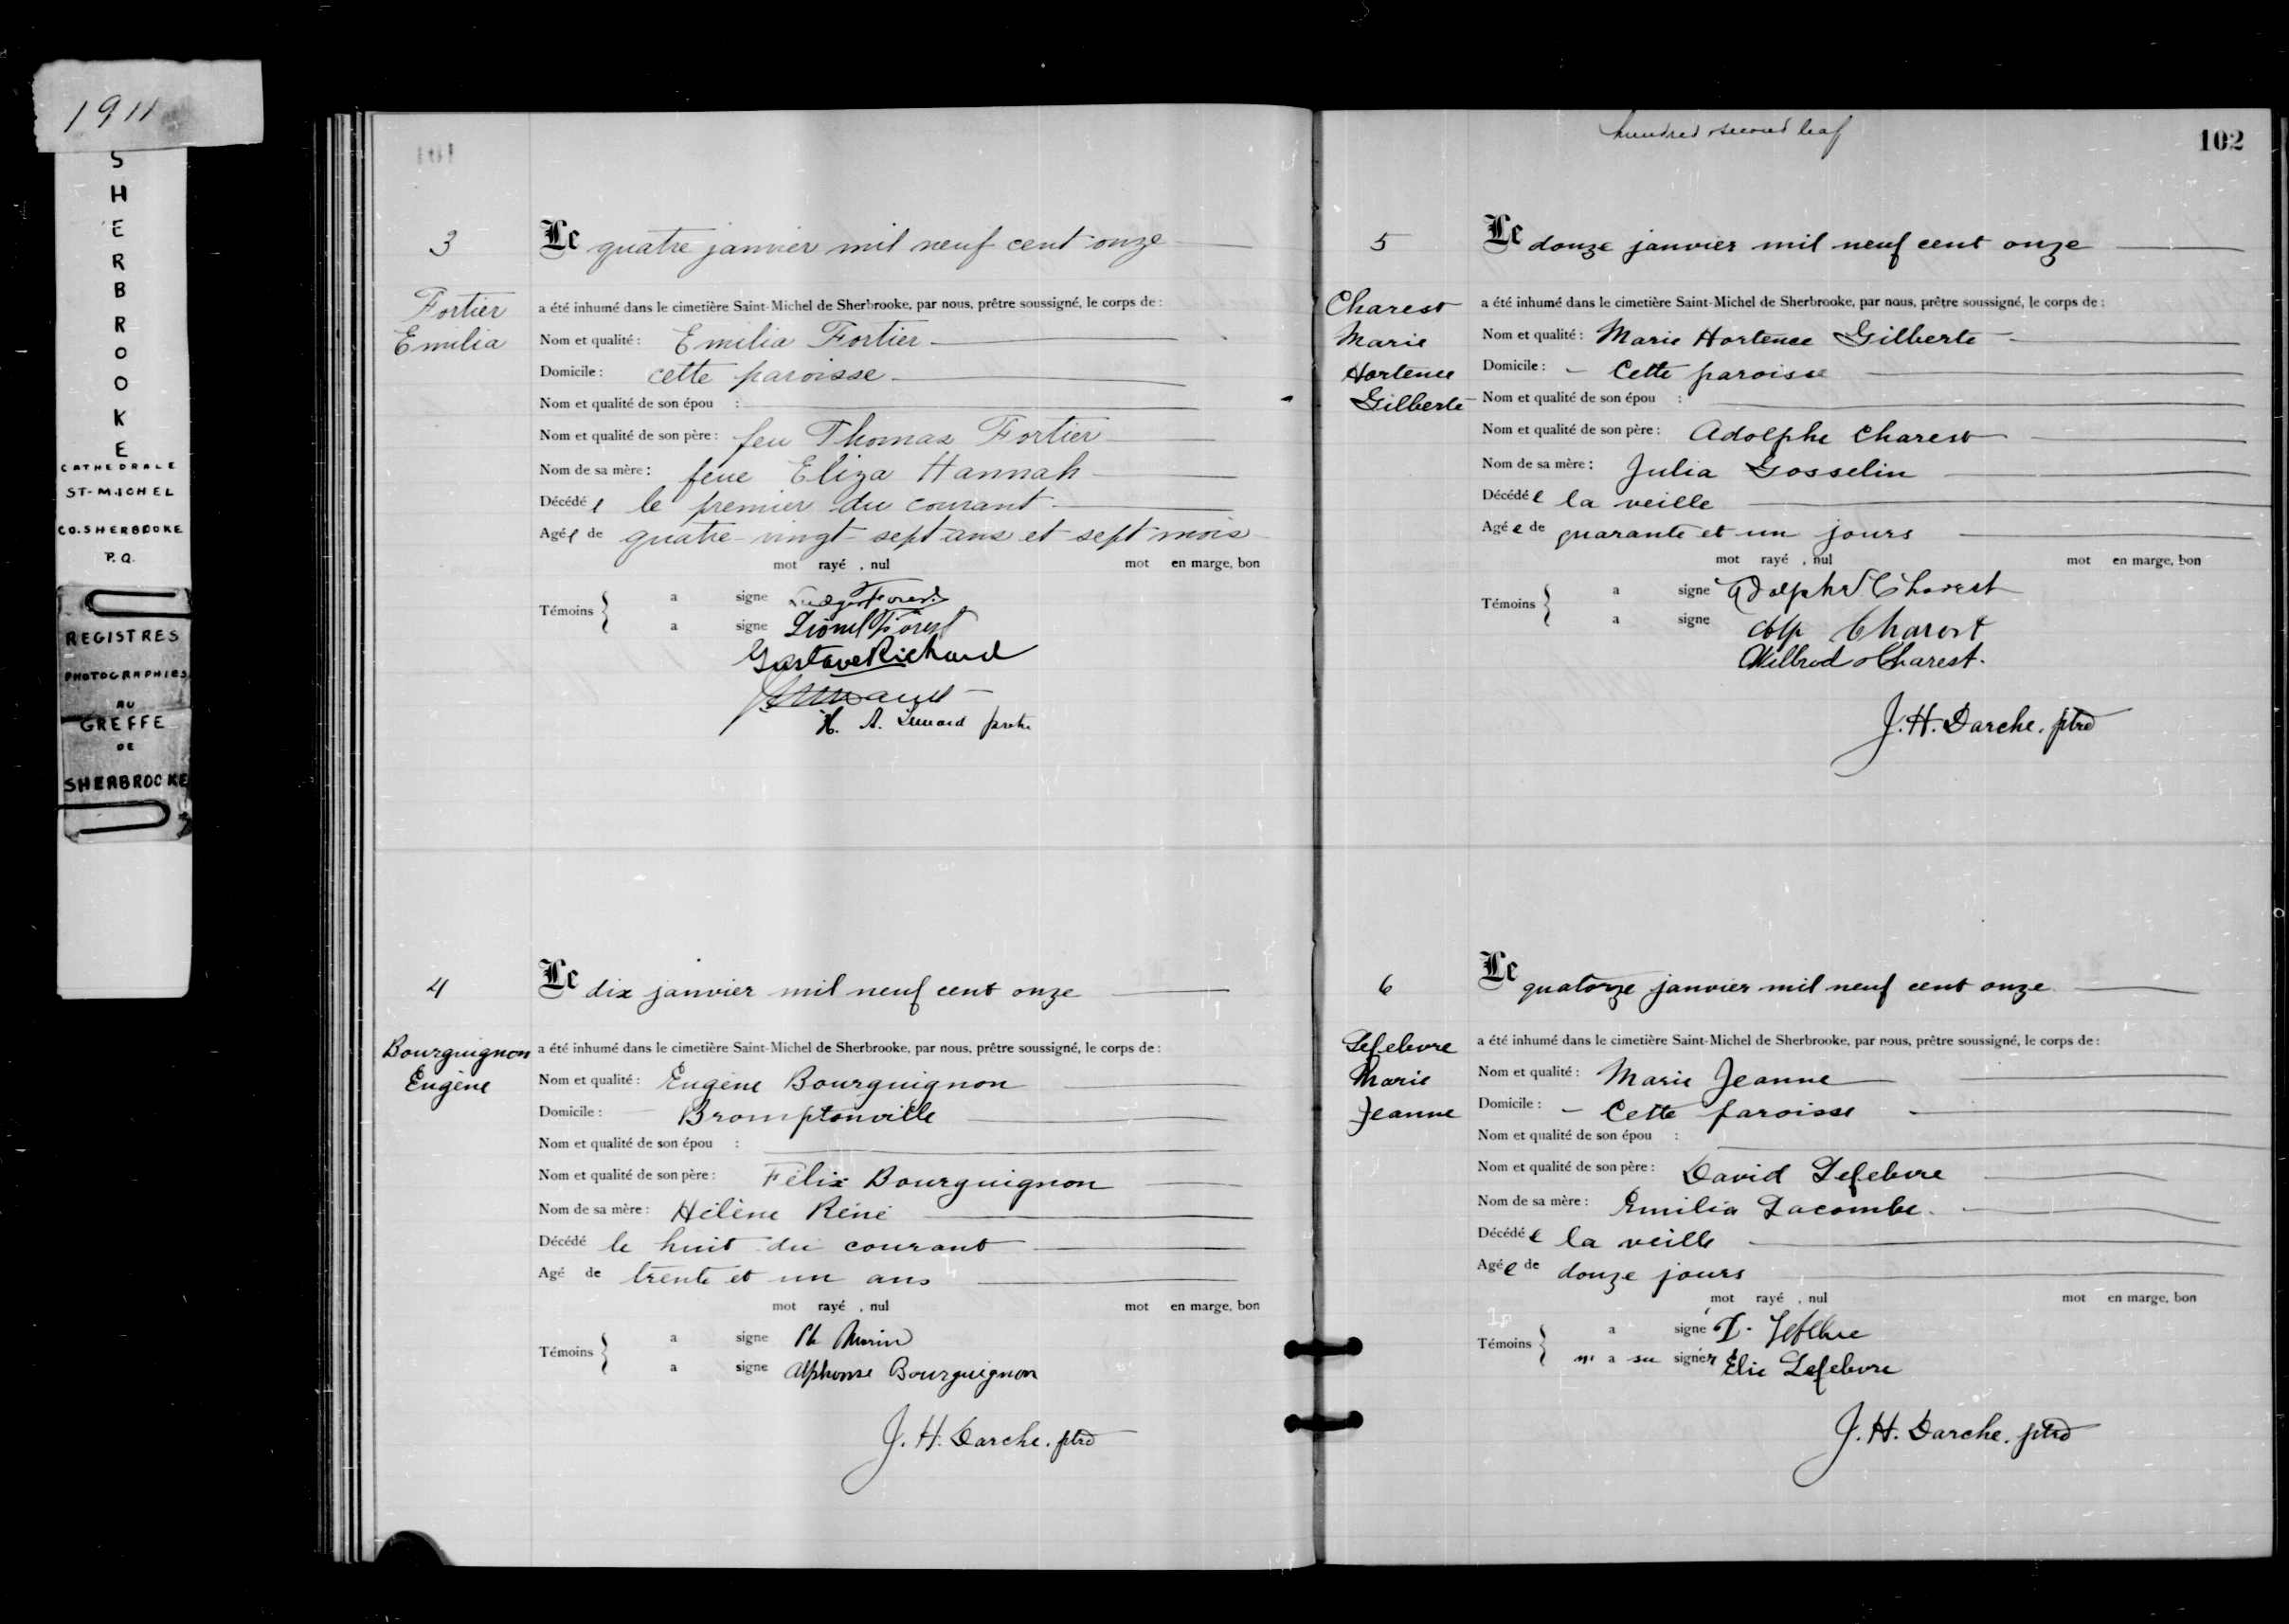 1911
SHERBROOKE
CATHEDRALE
ST-MICHEL
CO. SHERBROOKE
P.Q.
REGISTRES
PHOTOGRAPHIES
AU
GREFFE
DE
SHERBROOKE
101
3
Le quatre janvier mil neuf cent onze
Fortier
Emilia
a été inhumé dans le cimetière Saint-Michel de Sherbrooke, par nous, prêtre soussigné, le corps de :
Nom et qualité : Emilia Fortier
Domicile : cette paroisse
Nom et qualité de son épou :
Nom et qualité de son père : feu Thomas Fortier
Nom de sa mère : feue Eliza Hannah
Décédée le premier du courant
Agée de quatre-vingt-sept ans et sept mois
mot rayé , nul mot en marge, bon
Témoins
a signe Ludger Forest
a signe Lionel Forest
Gustave Richard
H. A. Simard ptre
4
Le dix janvier mil neuf cent onze
Bourguignon
Eugène
a été inhumé dans le cimetière Saint-Michel de Sherbrooke, par nous, prêtre soussigné, le corps de :
Nom et qualité : Eugène Bourguignon
Domicile : Bromptonville
Nom et qualité de son épou :
Nom et qualité de son père : Félix Bourguignon
Nom de sa mère : Hélène Réné
Décédé le huit du courant
Agé de trente et un ans
mot rayé , nul mot en marge, bon
Témoins
a signe
a signe Alphonse Bourguignon
J. H. Darche. ptre
hundred second leaf
102
5
Le douze janvier mil neuf cent onze
Charest
Marie
Hortence
Gilberte
a été inhumé dans le cimetière Saint-Michel de Sherbrooke, par nous, prêtre soussigné, le corps de :
Nom et qualité : Marie Hortence Gilberte
Domicile : Cette paroisse
Nom et qualité de son épou :
Nom et qualité de son père : Adolphe Charest
Nom de sa mère : Julia Gosselin
Décédée la veille
Agée de quarante et un jours
mot rayé , nul mot en marge, bon
Témoins
a signe Adolphe Charest
a signe Alp Charest
Wilbrod Charest.
J. H. Darche. ptre
6
Le quatorze janvier mil neuf cent onze
Lefebvre
Marie
Jeanne
a été inhumé dans le cimetière Saint-Michel de Sherbrooke, par nous, prêtre soussigné, le corps de :
Nom et qualité : Marie Jeanne
Domicile : Cette paroisse
Nom et qualité de son épou :
Nom et qualité de son père : David Lefebvre
Nom de sa mère : Emilia Lacombe
Décédée la veille
Agée de douze jours
mot rayé , nul mot en marge, bon
Témoins
a signé D. Lefebvre
n'a su signer Elie Lefebvre
J. H. Darche. ptre